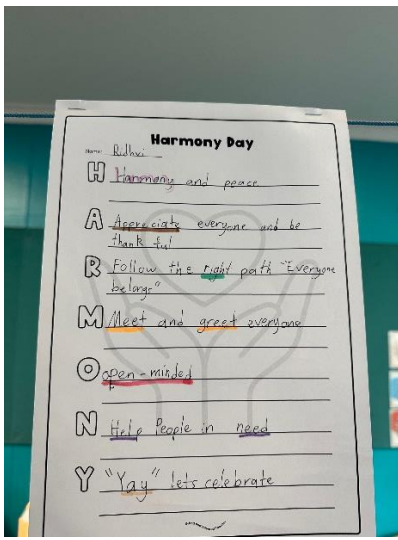 Harmony Day
Name: Ridhvi
H Harmony and peace
A Appreciate everyone and be
thankful
R Follow the right path "Everyone
belongs"
M Meet and greet everyone
O open-minded
N Help People in need
Y "Yay" lets celebrate